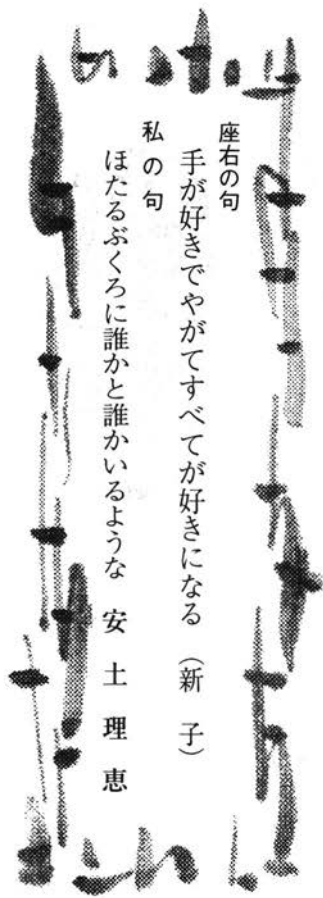 座右の句
手が好きでやがてすべてが好きになる （新 子）
私の句
ほたるぶくろに誰かと誰かいるような 安 土 理 恵